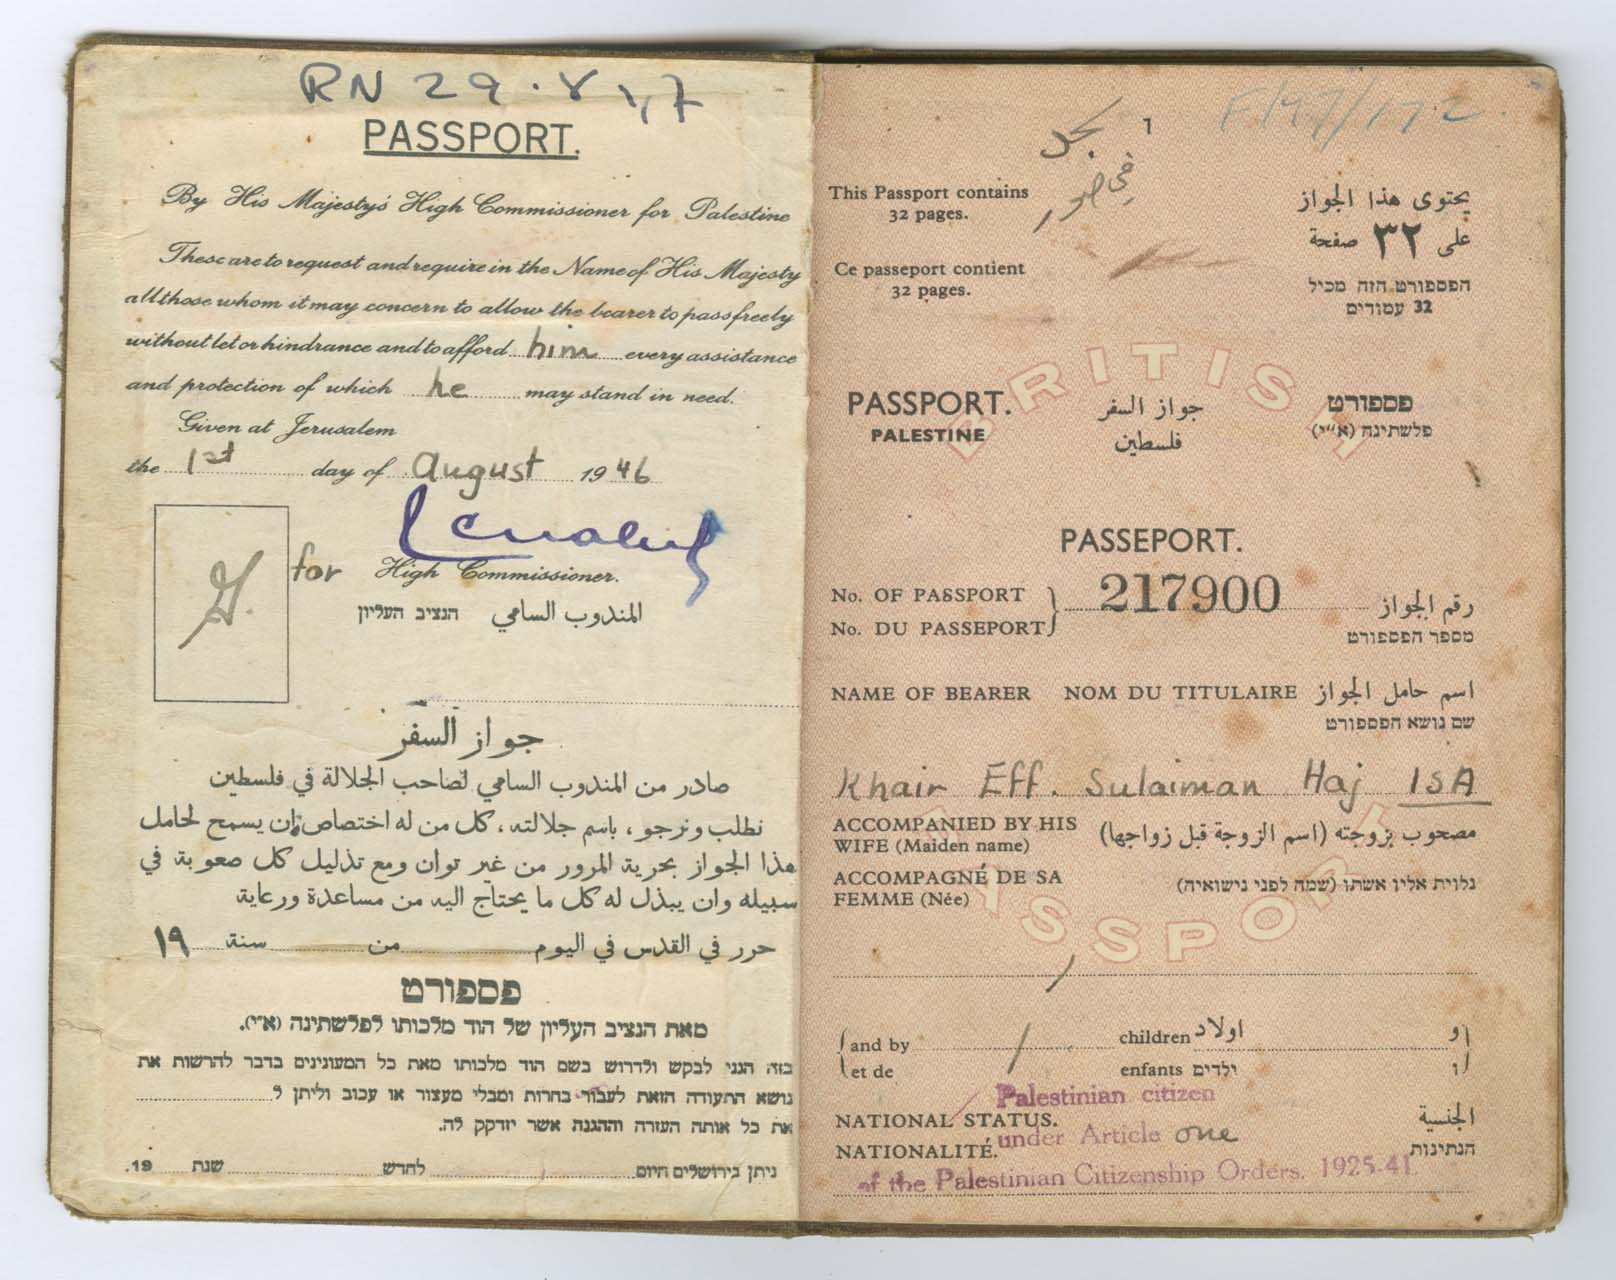 RN 29.
PASSPORT.
By His Majesty's High Commissioner for Palestine
These are to request and require in the Name of His Majesty
all those whom it may concern to allow the bearer to pass freely
without let or hindrance and to afford him every assistance
and protection of which he may stand in need.
Given at Jerusalem
the 1st day of August 1946
for High Commissioner.
המנדوب السامي הנציב העליון
جواز السفر
صادر من المندوب السامي لصاحب الجلالة في فلسطين
نطلب ونرجو، باسم جلالته، كل من له اختصاص ان يسمح لحامل
هذا الجواز بحرية المرور من غير توان ومع تذليل كل صعوبة في
سبيله وان يبذل له كل ما يحتاج اليه من مساعدة ورعاية
حرر في القدس في اليوم من سنة ١٩
פספורט
מאת הנציב העליון של הוד מלכותו לפלשתינה (א״י).
בזה הנני לבקש ולדרוש בשם הוד מלכותו מאת כל המעונינים בדבר להרשות את
נושא התעודה הזאת לעבור בחרות ומבלי מעצור או עכוב וליתן ל
את כל אותה העזרה וההגנה אשר יזדקק לה.
ניתן בירושלים היום לחדש שנת 19.
1
F/97/172
This Passport contains
32 pages.
يحتوى هذا الجواز
على ٣٢ صفحة
Ce passeport contient
32 pages.
הפספורט הזה מכיל
32 עמודים
BRITISH
PASSPORT. جواز السفر פספורט
PALESTINE فلسطين פלשתינה (א״י)
PASSEPORT.
No. OF PASSPORT
No. DU PASSEPORT
217900
رقم الجواز
מספר הפספורט
NAME OF BEARER NOM DU TITULAIRE اسم حامل الجواز
שם נושא הפספורט
Khair Eff. Sulaiman Haj ISA
ACCOMPANIED BY HIS
WIFE (Maiden name)
مصحوب بزوجته (اسم الزوجة قبل زواجها)
ACCOMPAGNÉ DE SA
FEMME (Née)
נלוית אליו אשתו (שמה לפני נישואיה)
PASSPORT
and by children اولاد و
et de enfants ילדים ו
Palestinian citizen
NATIONAL STATUS. الجنسية
under Article one
NATIONALITÉ. הנתינות
of the Palestinian Citizenship Orders. 1925-41.